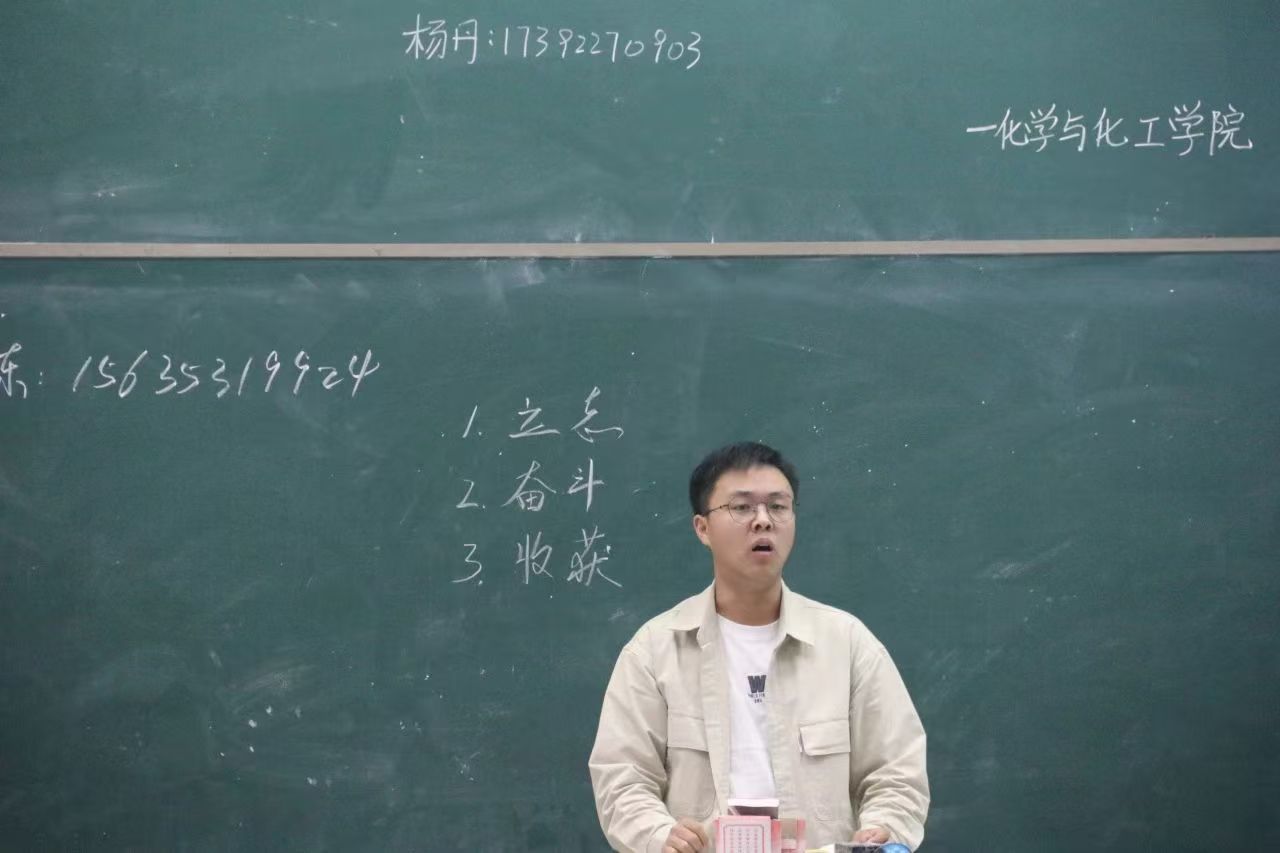 杨丹:17392270903
一化学与化工学院
东:15635319924
1.立志
2.奋斗
3.收获
W